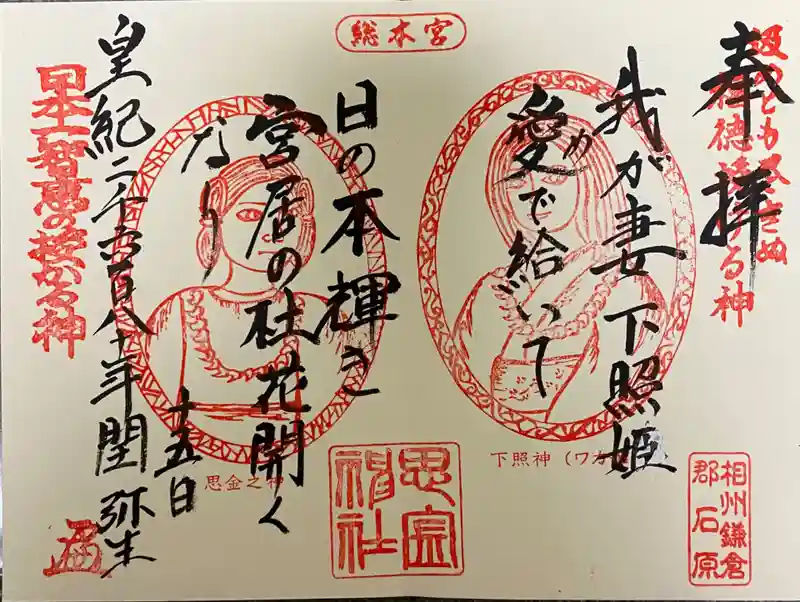 総本宮
奉拝
我が妻下照姫
愛で給いて
日の本輝き
宮居の社花開く
なり
皇紀二千六百八十年閏弥生
十五日
日本一智恵の授かる神
思金之神
下照神（ワカ
思金
神社
相州鎌倉
郡石原